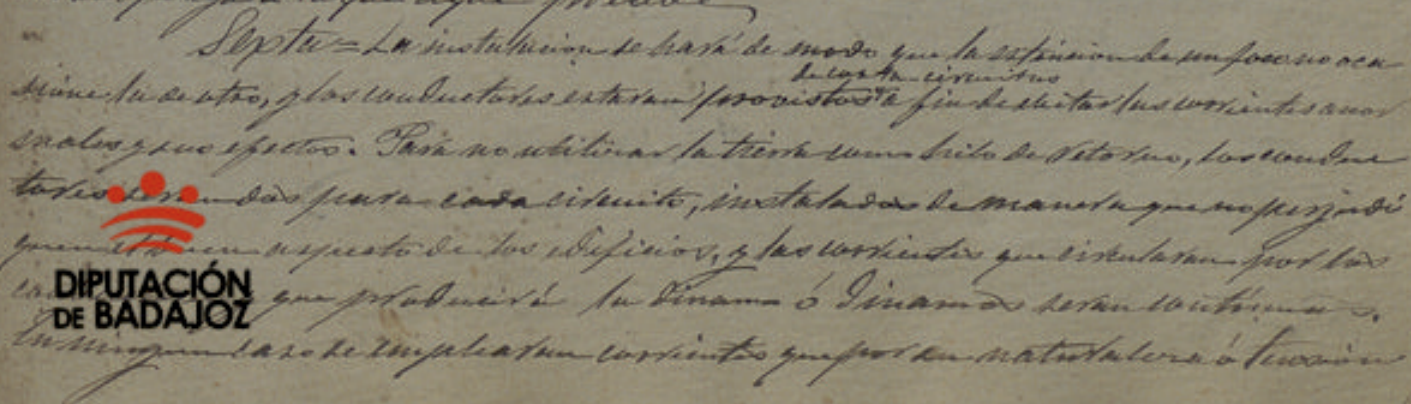 Septa = La instalacion se hará de modo que la estincion de un foco no oca
sione la de otro, y los conductores estaran provistos de corta circuitos a fin de evitar las corrientes anor
males y sus efectos. Para no utilizar la tierra como hilo de retorno, los conduc
tores seran dos para cada circuito, instalados de manera que no perjudi
quen el buen aspecto de los edificios, y las corrientes que circularan por los
que producirá la dinamo ó dinamos seran continuas.
En ningun caso se emplearan corrientes que por su naturaleza ó tension
DIPUTACIÓN
DE BADAJOZ